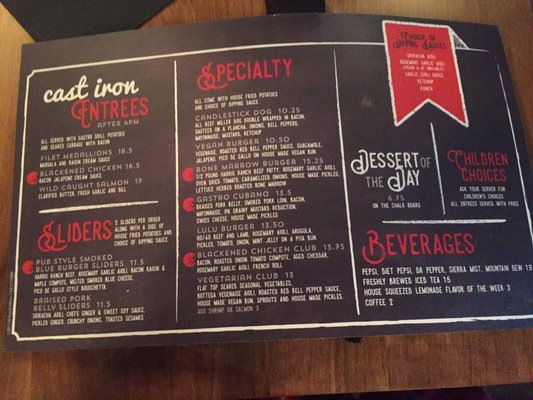 cast iron
ENTREES
AFTER 4PM
ALL SERVED WITH GASTRO GRILL POTATOES
AND SEARED CABBAGE WITH BACON
FILET MEDALLIONS 18.5
MARSALA AND BACON CREAM SAUCE
BLACKENED CHICKEN 16.5
BACON JALAPENO CREAM SAUCE
WILD CAUGHT SALMON 17
CLARIFIED BUTTER, FRESH GARLIC AND DILL
SLIDERS
2 SLIDERS PER ORDER
ALONG WITH A SIDE OF
HOUSE FRIED POTATOES AND
CHOICE OF DIPPING SAUCE
PUB STYLE SMOKED
BLUE BURGER SLIDERS 11.5
HARRIS RANCH BEEF, ROSEMARY GARLIC AIOLI, BACON RAISIN &
MAPLE COMPOTE, MELTED SMOKED BLUE CHEESE,
PICO DE GALLO STYLE BRUSCHETTA
BRAISED PORK
BELLY SLIDERS 11.5
SRIRACHA AIOLI CHEFS GINGER & SWEET SOY SAUCE,
PICKLED GINGER, CRUNCHY ONIONS, TOASTED SESAMES
SPECIALTY
ALL COME WITH HOUSE FRIED POTATOES
AND CHOICE OF DIPPING SAUCE
CANDLESTICK DOG 10.25
ALL BEEF MILLER DOG DOUBLE WRAPPED IN BACON,
SAUTEED ON A PLANCHA, ONIONS, BELL PEPPERS,
MAYONNAISE, MUSTARD, KETCHUP
VEGAN BURGER 10.50
VEGENAISE, ROASTED RED BELL PEPPER SAUCE, GUACAMOLE,
JALAPENO, PICO DE GALLO ON HOUSE MADE VEGAN BUN
BONE MARROW BURGER 15.25
1/2 POUND HARRIS RANCH BEEF PATTY, ROSEMARY GARLIC AIOLI,
OVEN DRIED TOMATO, CARAMELIZED ONIONS, HOUSE MADE PICKLES,
LETTUCE HERBED ROASTED BONE MARROW
GASTRO CUBANO 13.5
BRAISED PORK BELLY, SMOKED PORK LOIN, BACON,
MAYONNAISE, BIN GRAINY MUSTARD REDUCTION,
SWISS CHEESE, HOUSE MADE PICKLES
LULU BURGER 13.50
60/40 BEEF AND LAMB, ROSEMARY AIOLI, ARUGULA,
PICKLES, TOMATO, ONION, MINT JELLY ON A PITA BUN
BLACKENED CHICKEN CLUB 13.75
BACON, ROASTED ONION TOMATO COMPOTE, AGED CHEDDAR,
ROSEMARY GARLIC AIOLI, FRENCH ROLL
VEGETARIAN CLUB 13
FLAT TOP SEARED SEASONAL VEGETABLES,
BOTTEGA VEGENAISE AIOLI, ROASTED RED BELL PEPPER SAUCE,
HOUSE MADE VEGAN BUN, SPROUTS AND HOUSE MADE PICKLES.
ADD SHRIMP OR SALMON 3
CHOICE OF
DIPPING SAUCES
SRIRACHA AIOLI
ROSEMARY GARLIC AIOLI
GARLIC CHILI SAUCE
KETCHUP
RANCH
DESSERT OF
THE DAY
6.95
ON THE CHALK BOARD
CHILDREN
CHOICES
ASK YOUR SERVER FOR
CHILDREN'S CHOICES
ALL ENTREES SERVED WITH FRIES
BEVERAGES
PEPSI, DIET PEPSI, DR PEPPER, SIERRA MIST, MOUNTAIN DEW 1.9
FRESHLY BREWED ICED TEA 1.5
HOUSE SQUEEZED LEMONADE FLAVOR OF THE WEEK 3
COFFEE 2